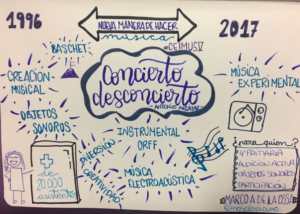 1996
NUEVA MANERA DE HACER
música
2017
#CEIMUSV
BASCHET
CREACION
MUSICAL
Concierto
desconcierto
MÚSICA
EXPERIMENTAL
OBJETOS
SONOROS
INSTRUMENTAL
ORFF
DIVERSION
CREATIVIDAD
MÚSICA
ELECTROACÚSTICA
+
de
20.000
asistentes
¿para quien?
MARCO A DE LA OSSA